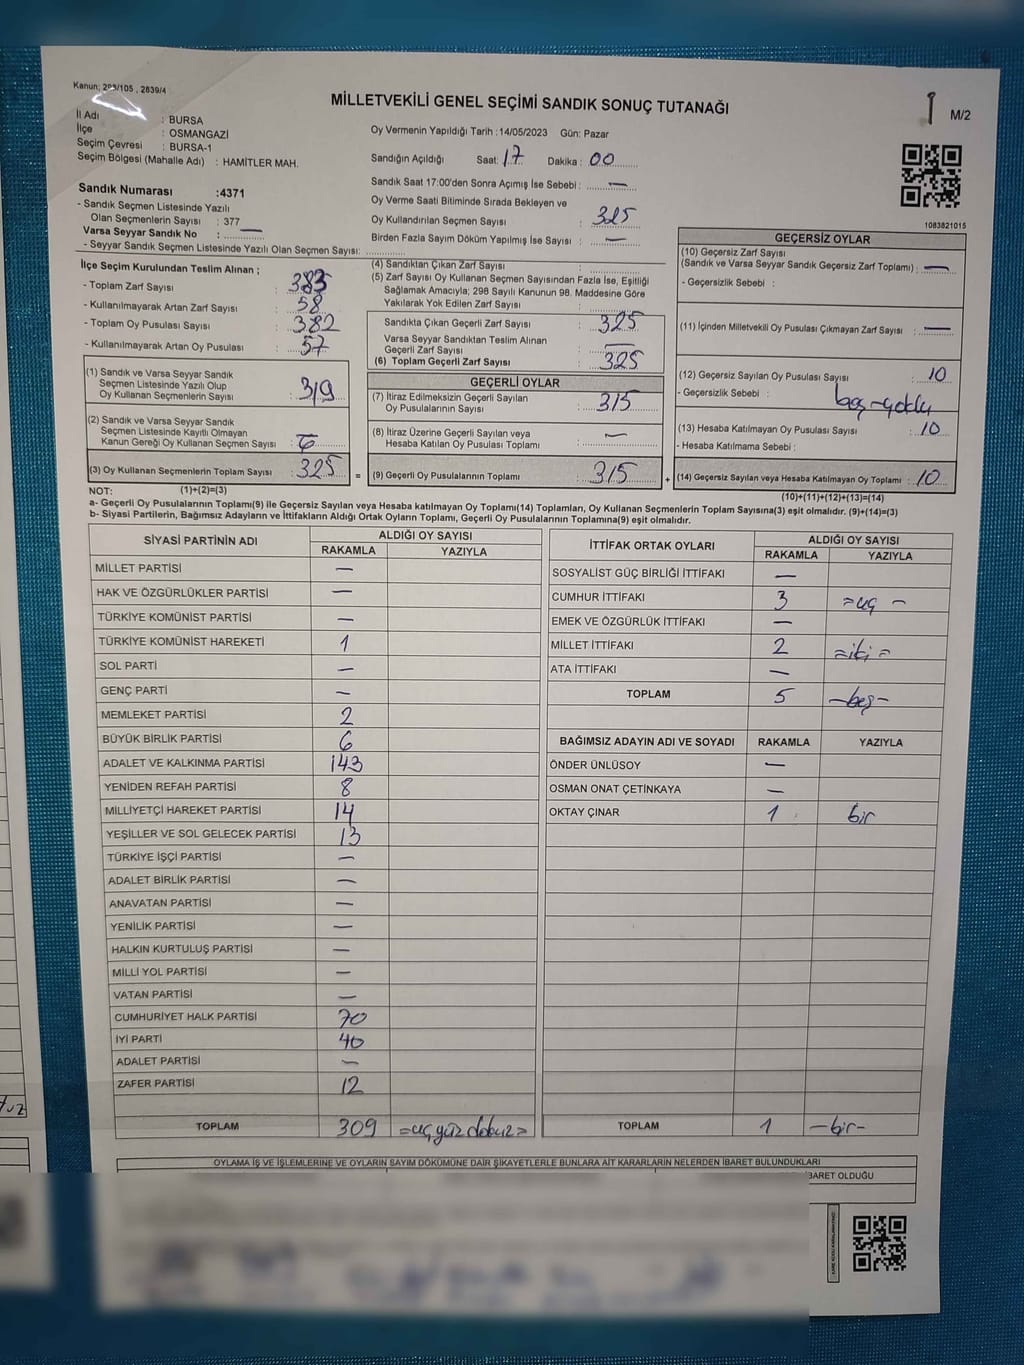 Kanun: 298/105 , 2839/4
MİLLETVEKİLİ GENEL SEÇİMİ SANDIK SONUÇ TUTANAĞI
1 M/2
İl Adı : BURSA
İlçe : OSMANGAZİ
Seçim Çevresi : BURSA-1
Seçim Bölgesi (Mahalle Adı) : HAMİTLER MAH.
Oy Vermenin Yapıldığı Tarih :14/05/2023 Gün: Pazar
Sandığın Açıldığı Saat: 17 Dakika : 00
Sandık Saat 17:00'den Sonra Açımış İse Sebebi : —
Oy Verme Saati Bitiminde Sırada Bekleyen ve
Oy Kullandırılan Seçmen Sayısı : 325
Birden Fazla Sayım Döküm Yapılmış İse Sayısı : —
1083821015
Sandık Numarası :4371
- Sandık Seçmen Listesinde Yazılı
Olan Seçmenlerin Sayısı : 377
Varsa Seyyar Sandık No : —
- Seyyar Sandık Seçmen Listesinde Yazılı Olan Seçmen Sayısı:
İlçe Seçim Kurulundan Teslim Alınan ;
- Toplam Zarf Sayısı : 383
- Kullanılmayarak Artan Zarf Sayısı : 58
- Toplam Oy Pusulası Sayısı : 382
- Kullanılmayarak Artan Oy Pusulası : 57
(1) Sandık ve Varsa Seyyar Sandık
Seçmen Listesinde Yazılı Olup
Oy Kullanan Seçmenlerin Sayısı : 319
(2) Sandık ve Varsa Seyyar Sandık
Seçmen Listesinde Kayıtlı Olmayan
Kanun Gereği Oy Kullanan Seçmen Sayısı : 6
(3) Oy Kullanan Seçmenlerin Toplam Sayısı : 325 =
(4) Sandıktan Çıkan Zarf Sayısı :
(5) Zarf Sayısı Oy Kullanan Seçmen Sayısından Fazla İse, Eşitliği
Sağlamak Amacıyla; 298 Sayılı Kanunun 98. Maddesine Göre
Yakılarak Yok Edilen Zarf Sayısı :
Sandıkta Çıkan Geçerli Zarf Sayısı : 325
Varsa Seyyar Sandıktan Teslim Alınan
Geçerli Zarf Sayısı : —
(6) Toplam Geçerli Zarf Sayısı : 325
GEÇERLİ OYLAR
(7) İtiraz Edilmeksizin Geçerli Sayılan
Oy Pusulalarının Sayısı : 315
(8) İtiraz Üzerine Geçerli Sayılan veya
Hesaba Katılan Oy Pusulaları Toplamı : —
(9) Geçerli Oy Pusulalarının Toplamı : 315 +
GEÇERSİZ OYLAR
(10) Geçersiz Zarf Sayısı
(Sandık ve Varsa Seyyar Sandık Geçersiz Zarf Toplamı) : —
- Geçersizlik Sebebi :
(11) İçinden Milletvekili Oy Pusulası Çıkmayan Zarf Sayısı : —
(12) Geçersiz Sayılan Oy Pusulası Sayısı : 10
- Geçersizlik Sebebi :
(13) Hesaba Katılmayan Oy Pusulası Sayısı : 10
- Hesaba Katılmama Sebebi :
(14) Geçersiz Sayılan veya Hesaba Katılmayan Oy Toplamı : 10
NOT: (1)+(2)=(3)
(10)+(11)+(12)+(13)=(14)
a- Geçerli Oy Pusulalarının Toplamı(9) ile Geçersiz Sayılan veya Hesaba Katılmayan Oy Toplamı(14) Toplamları, Oy Kullanan Seçmenlerin Toplam Sayısına(3) eşit olmalıdır. (9)+(14)=(3)
b- Siyasi Partilerin, Bağımsız Adayların ve İttifakların Aldığı Ortak Oyların Toplamı, Geçerli Oy Pusulalarının Toplamına(9) eşit olmalıdır.
SİYASİ PARTİNİN ADI ALDIĞI OY SAYISI
RAKAMLA YAZIYLA
MİLLET PARTİSİ —
HAK VE ÖZGÜRLÜKLER PARTİSİ —
TÜRKİYE KOMÜNİST PARTİSİ —
TÜRKİYE KOMÜNİST HAREKETİ 1
SOL PARTİ —
GENÇ PARTİ —
MEMLEKET PARTİSİ 2
BÜYÜK BİRLİK PARTİSİ 6
ADALET VE KALKINMA PARTİSİ 143
YENİDEN REFAH PARTİSİ 8
MİLLİYETÇİ HAREKET PARTİSİ 14
YEŞİLLER VE SOL GELECEK PARTİSİ 13
TÜRKİYE İŞÇİ PARTİSİ —
ADALET BİRLİK PARTİSİ —
ANAVATAN PARTİSİ —
YENİLİK PARTİSİ —
HALKIN KURTULUŞ PARTİSİ —
MİLLİ YOL PARTİSİ —
VATAN PARTİSİ —
CUMHURİYET HALK PARTİSİ 70
İYİ PARTİ 40
ADALET PARTİSİ —
ZAFER PARTİSİ 12
TOPLAM 309 =üç yüz dokuz=
İTTİFAK ORTAK OYLARI ALDIĞI OY SAYISI
RAKAMLA YAZIYLA
SOSYALİST GÜÇ BİRLİĞİ İTTİFAKI —
CUMHUR İTTİFAKI 3 =üç —
EMEK VE ÖZGÜRLÜK İTTİFAKI —
MİLLET İTTİFAKI 2 =iki =
ATA İTTİFAKI —
TOPLAM 5 —beş—
BAĞIMSIZ ADAYIN ADI VE SOYADI RAKAMLA YAZIYLA
ÖNDER ÜNLÜSOY —
OSMAN ONAT ÇETİNKAYA —
OKTAY ÇINAR 1 bir
TOPLAM 1 —bir—
OYLAMA İŞ VE İŞLEMLERİNE VE OYLARIN SAYIM DÖKÜMÜNE DAİR ŞİKAYETLERLE BUNLARA AİT KARARLARIN NELERDEN İBARET BULUNDUKLARI
İBARET OLDUĞU